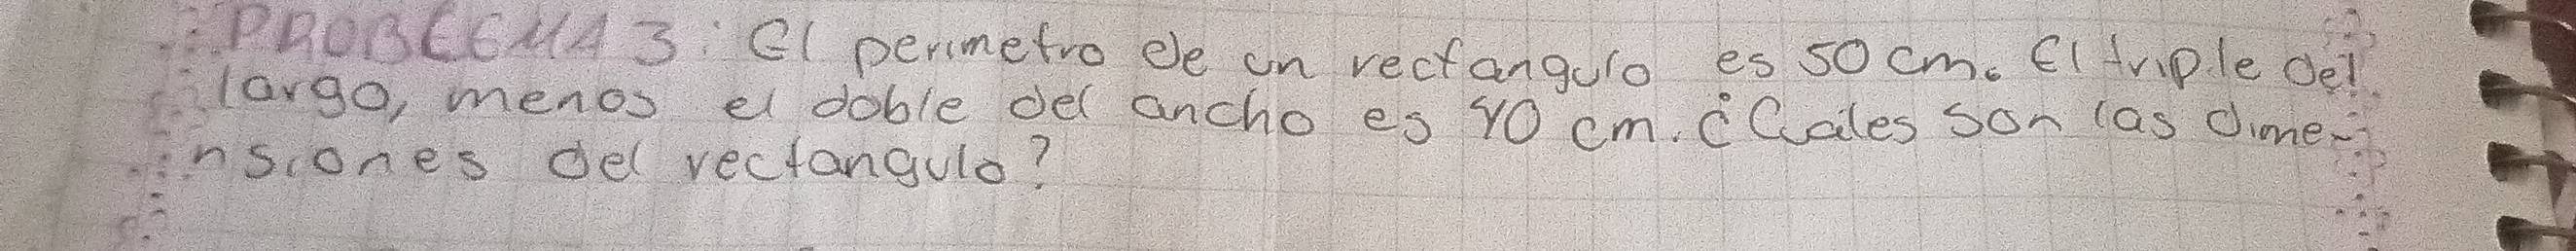 PROBLEMA 3: El perimetro de un rectangulo es 50 cm. El triple del
largo, menos el doble del ancho es 40 cm. ¿Cuales son las dime-
nsiones del rectangulo?